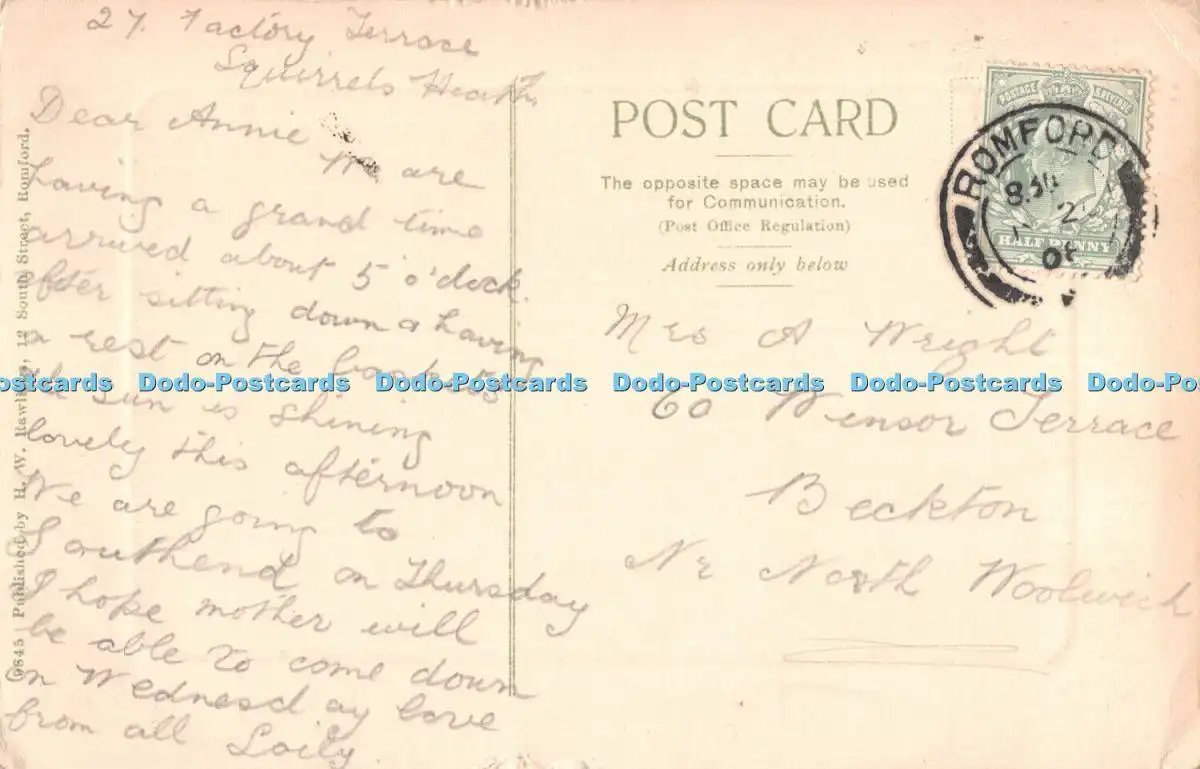 27. Factory Terrace
Squirrels Heath,
Dear Annie
We are
having a grand time
arrived about 5 o'clock.
after sitting down a having
a rest on the
the sun is shining
lovely this afternoon
We are going to
Southend on Thursday
I hope mother will
be able to come down
on Wednesday love
from all
6845 Published by H. W. Rawlings, 12 South Street, Romford.
POST CARD
The opposite space may be used
for Communication.
(Post Office Regulation)
Address only below
POSTAGE REVENUE
HALF PENNY
ROMFORD
Mrs A Wright
60 Wensor Terrace
Beckton
Nr North Woolwich
Dodo-Postcards Dodo-Postcards Dodo-Postcards Dodo-Postcards